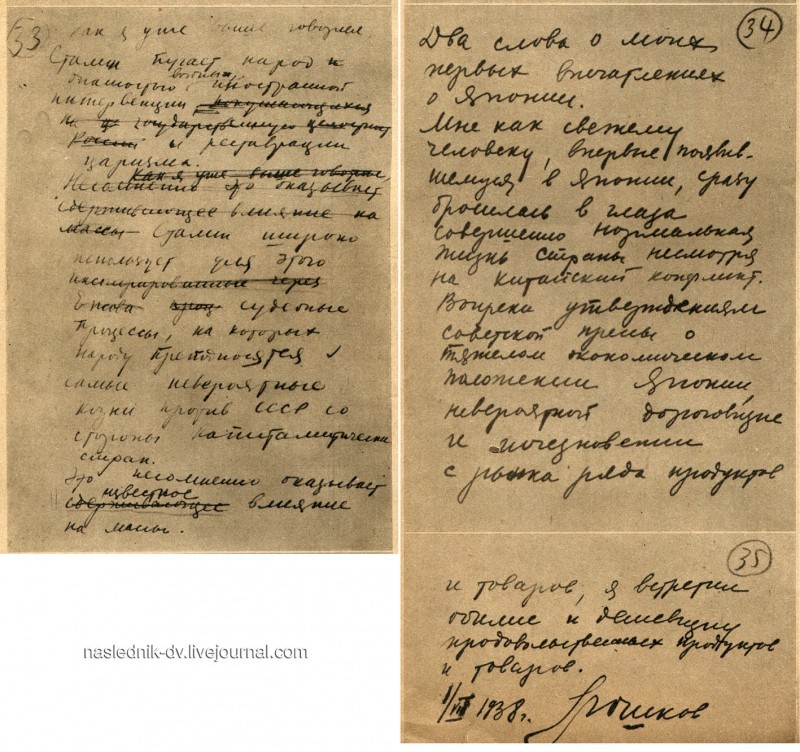 33
как я уже выше говорил,
Сталин пугает народ
опасностью военной иностранной
интервенции, покушающихся
на государственную целостность
России и реставрации
царизма.
Как я уже выше говорил,
Несомненно это оказывает
сдерживающее влияние на
массы Сталин широко
использует для этого
инсценированные через
Ежова судебные
процессы, на которых
народу преподносятся
самые невероятные
козни против СССР со
стороны капиталистических
стран.
Это несомненно оказывает
известное
сдерживающее влияние
на массы.
34
Два слова о моих
первых впечатлениях
о Японии.
Мне как свежему
человеку, впервые появив-
шемуся в Японии, сразу
бросилась в глаза
совершенно нормальная
жизнь страны несмотря
на китайский конфликт.
Вопреки утверждениям
советской прессы о
тяжелом экономическом
положении Японии,
невероятной дороговизне
и исчезновении
с рынка ряда продуктов
35
и товаров, я встретил
обилие и дешевизну
продовольственных продуктов
и товаров.
1/VII 1938г. Люшков
naslednik-dv.livejournal.com